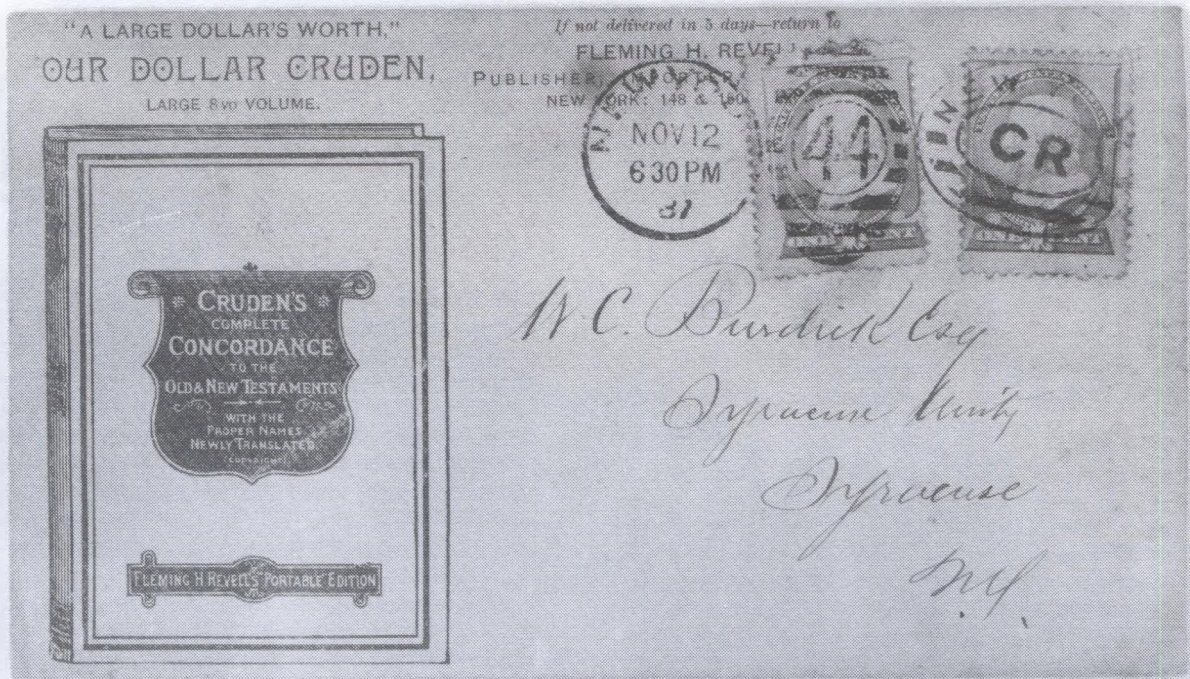 "A LARGE DOLLAR'S WORTH,"
OUR DOLLAR CRUDEN,
LARGE 8vo VOLUME.
CRUDEN'S
COMPLETE
CONCORDANCE
TO THE
OLD & NEW TESTAMENTS
WITH THE
PROPER NAMES
NEWLY TRANSLATED
(COPYRIGHT)
FLEMING H. REVELL'S PORTABLE EDITION
If not delivered in 5 days—return to
FLEMING H. REVELL
PUBLISHER, IMPORTER
NEW YORK: 148 & 150
NOV 12
6 30 PM
87
44
CR
ONE CENT
ONE CENT
W C. Burdick Esq
Syracuse Univ
Syracuse
N.Y.